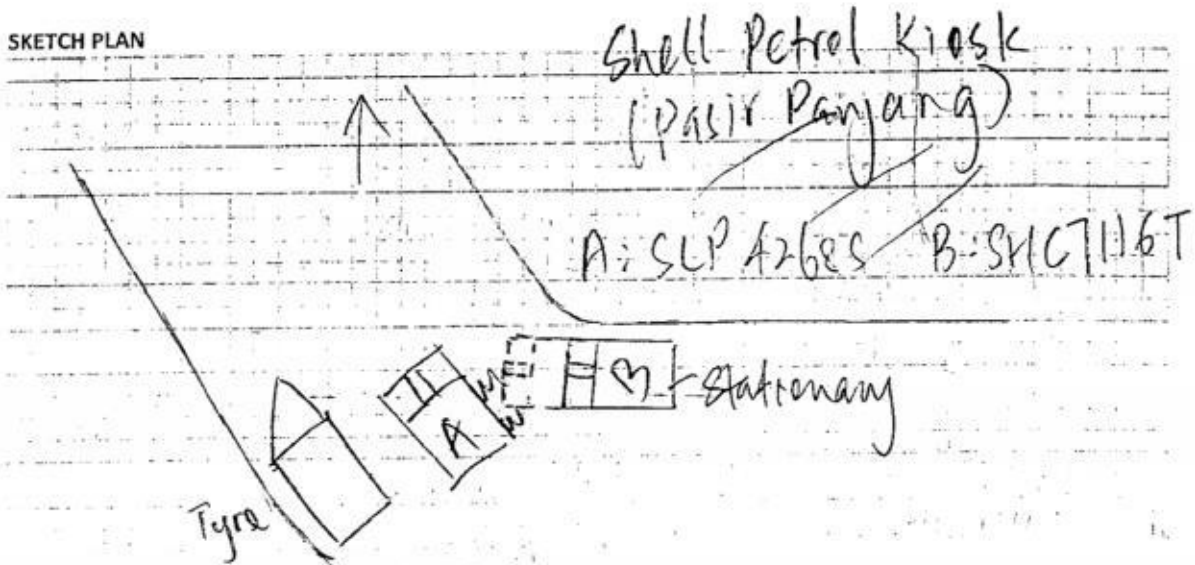 SKETCH PLAN
Shell Petrol Kiosk
(Pasir Panjang)
A: SLP 4268S B: SHC7116T
B - stationary
A
Tyre